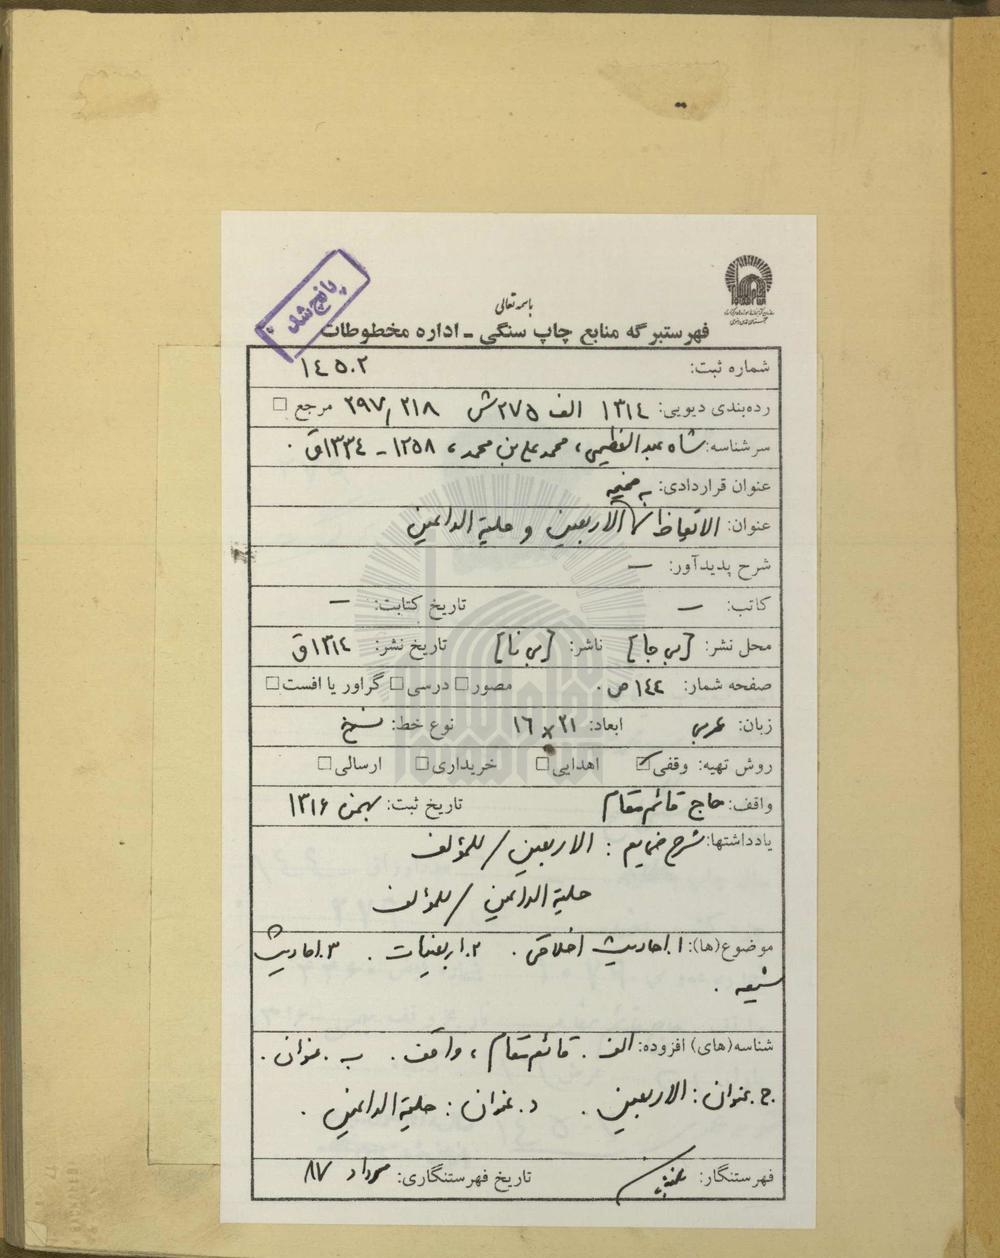 پانچ شد
باسمه تعالی
فهرستبرگه منابع چاپ سنگی ـ اداره مخطوطات
شماره ثبت: ١٤٥٠٢
رده‌بندی دیویی: ١٣١٤ الف ٢٧٥ش ٢٩٧/٢١٨ مرجع □
سرشناسه: شاه عبدالعظیمی، محمدعلی بن محمد، ١٢٥٨ - ١٣٣٤ق.
عنوان قراردادی:
عنوان: الاتعاظ / الاربعین و حلیة الداعین
شرح پدیدآور: —
کاتب: — تاریخ کتابت: —
محل نشر: [بی جا] ناشر: [بی نا] تاریخ نشر: ١٣١٤ق
صفحه شمار: ١٤٤ ص. مصور□ درسی□ گراور یا افست□
زبان: عربی ابعاد: ٢١×١٦ نوع خط: نسخ
روش تهیه: وقفی☑ اهدایی□ خریداری□ ارسالی□
واقف: حاج قائم مقام تاریخ ثبت: بهمن ١٣١۶
یادداشتها: شرح ضمایم: الاربعین / للمؤلف
حلیة الداعین / للمؤلف
موضوع(ها): ١.احادیث اخلاقی. ٢.اربعینیات. ٣.احادیث
شیعه.
شناسه(های) افزوده: الف. قائم مقام، واقف. ب. عنوان.
ج. عنوان: الاربعین. د. عنوان: حلیة الداعین.
فهرستنگار: تاریخ فهرستنگاری: مرداد ٨٧